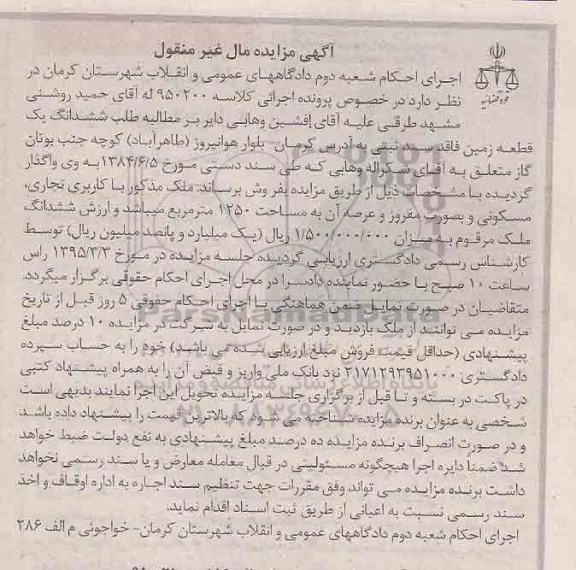 آگهی مزایده مال غیر منقول
اجرای احکام شعبه دوم دادگاههای عمومی و انقلاب شهرستان کرمان در
نظر دارد در خصوص پرونده اجرائی کلاسه ۹۵۰۲۰۰ له آقای حمید روشنی
مشهد طرقی علیه آقای افشین وهابی دایر بر مطالبه طلب ششدانگ یک
قطعه زمین فاقد سند ثبتی به آدرس کرمان- بلوار هوانیروز (طاهرآباد) کوچه جنب بوتان
گاز متعلق به آقای شکراله وهابی که طی سند دستی مورخ ۱۳۸۴/۶/۵ به وی واگذار
گردیده با مشخصات ذیل از طریق مزایده بفروش برساند: ملک مذکور با کاربری تجاری،
مسکونی و بصورت مفروز و عرصه آن به مساحت ۱۲۵۰ مترمربع میباشد و ارزش ششدانگ
ملک مرقوم به میزان ۱/۵۰۰/۰۰۰/۰۰۰ ریال (یک میلیارد و پانصد میلیون ریال) توسط
کارشناس رسمی دادگستری ارزیابی گردیده جلسه مزایده در مورخ ۱۳۹۵/۳/۳ راس
ساعت ۱۰ صبح با حضور نماینده دادسرا در محل اجرای احکام حقوقی برگزار میگردد.
متقاضیان در صورت تمایل ضمن هماهنگی با اجرای احکام حقوقی ۵ روز قبل از تاریخ
مزایده می توانند از ملک بازدید و در صورت تمایل به شرکت در مزایده ۱۰ درصد مبلغ
پیشنهادی (حداقل قیمت فروش مبلغ ارزیابی شده می باشد) خود را به حساب سپرده
دادگستری: ۲۱۷۱۲۹۳۹۵۱۰۰۰ نزد بانک ملی واریز و قبض آن را به همراه پیشنهاد کتبی
در پاکت در بسته و تا قبل از برگزاری جلسه مزایده تحویل این اجرا نمایند بدیهی است
شخصی به عنوان برنده مزایده شناخته می شود که بالاترین قیمت را پیشنهاد داده باشد
و در صورت انصراف برنده مزایده ده درصد مبلغ پیشنهادی به نفع دولت ضبط خواهد
شد ضمناً دایره اجرا هیچگونه مسئولیتی در قبال معامله معارض و یا سند رسمی نخواهد
داشت برنده مزایده می تواند وفق مقررات جهت تنظیم سند اجاره به اداره اوقاف و اخذ
سند رسمی نسبت به اعیانی از طریق ثبت اسناد اقدام نماید.
اجرای احکام شعبه دوم دادگاههای عمومی و انقلاب شهرستان کرمان- خواجوئی م الف ۲۸۶